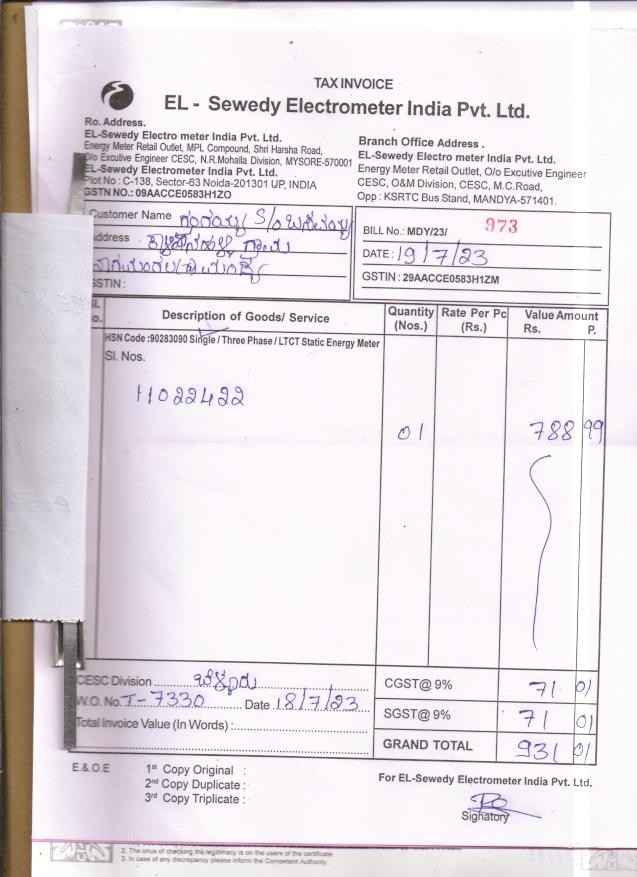 TAX INVOICE
EL - Sewedy Electrometer India Pvt. Ltd.
Ro. Address.
EL-Sewedy Electro meter India Pvt. Ltd.
Energy Meter Retail Outlet, MPL Compound, Shri Harsha Road,
O/o Excutive Engineer CESC, N.R.Mohalla Division, MYSORE-570001
EL-Sewedy Electrometer India Pvt. Ltd.
Plot No : C-138, Sector-63 Noida-201301 UP, INDIA
GSTN NO.: 09AACCE0583H1ZO
Branch Office Address .
EL-Sewedy Electro meter India Pvt. Ltd.
Energy Meter Retail Outlet, O/o Excutive Engineer
CESC, O&M Division, CESC, M.C.Road,
Opp : KSRTC Bus Stand, MANDYA-571401.
Customer Name S/o
Address
GSTIN :
BILL No.: MDY/23/ 973
DATE : 19/7/23
GSTIN : 29AACCE0583H1ZM
Sl. No. Description of Goods/ Service Quantity (Nos.) Rate Per Pc (Rs.) Value Amount Rs. P.
HSN Code :90283090 Single / Three Phase / LTCT Static Energy Meter
Sl. Nos.
11022422
01 788 99
CESC Division
W.O. No. T-7330 Date 18/7/23
Total Invoice Value (In Words) :
CGST@ 9% 71 01
SGST@ 9% 71 01
GRAND TOTAL 931 01
E.& O.E
1st Copy Original :
2nd Copy Duplicate :
3rd Copy Triplicate :
For EL-Sewedy Electrometer India Pvt. Ltd.
Signatory
2. The onus of checking the legitimacy is on the users of the certificate.
3. In case of any discrepancy please inform the Competent Authority.